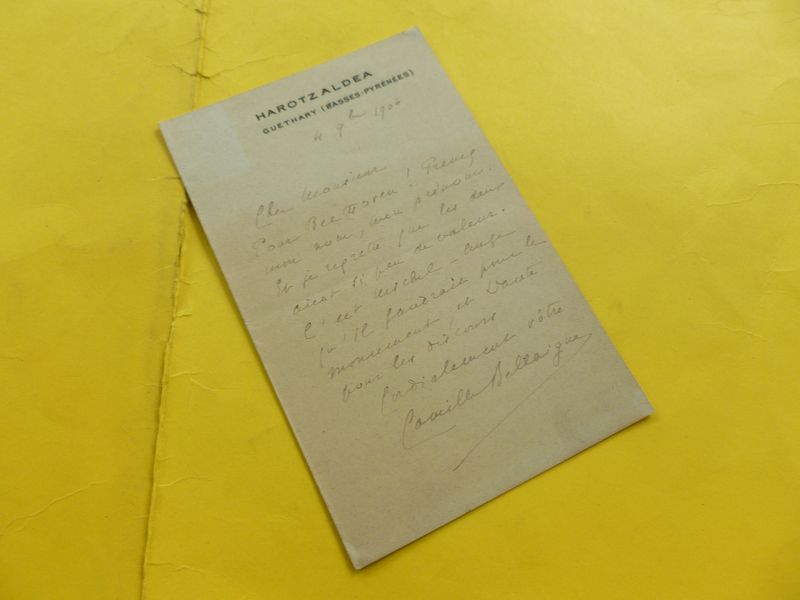 HAROTZALDEA
GUÉTHARY (BASSES-PYRÉNÉES)
4 9bre 1904
Cher Monsieur
Pour Beethoven ! Prenez
mon nom, mon prénom.
Et je regrette que les deux
aient si peu de valeur.
C'est Michel-Ange
qu'il faudrait pour le
monument, et Dante
pour les discours
Cordialement vôtre
Camille Bellaigue